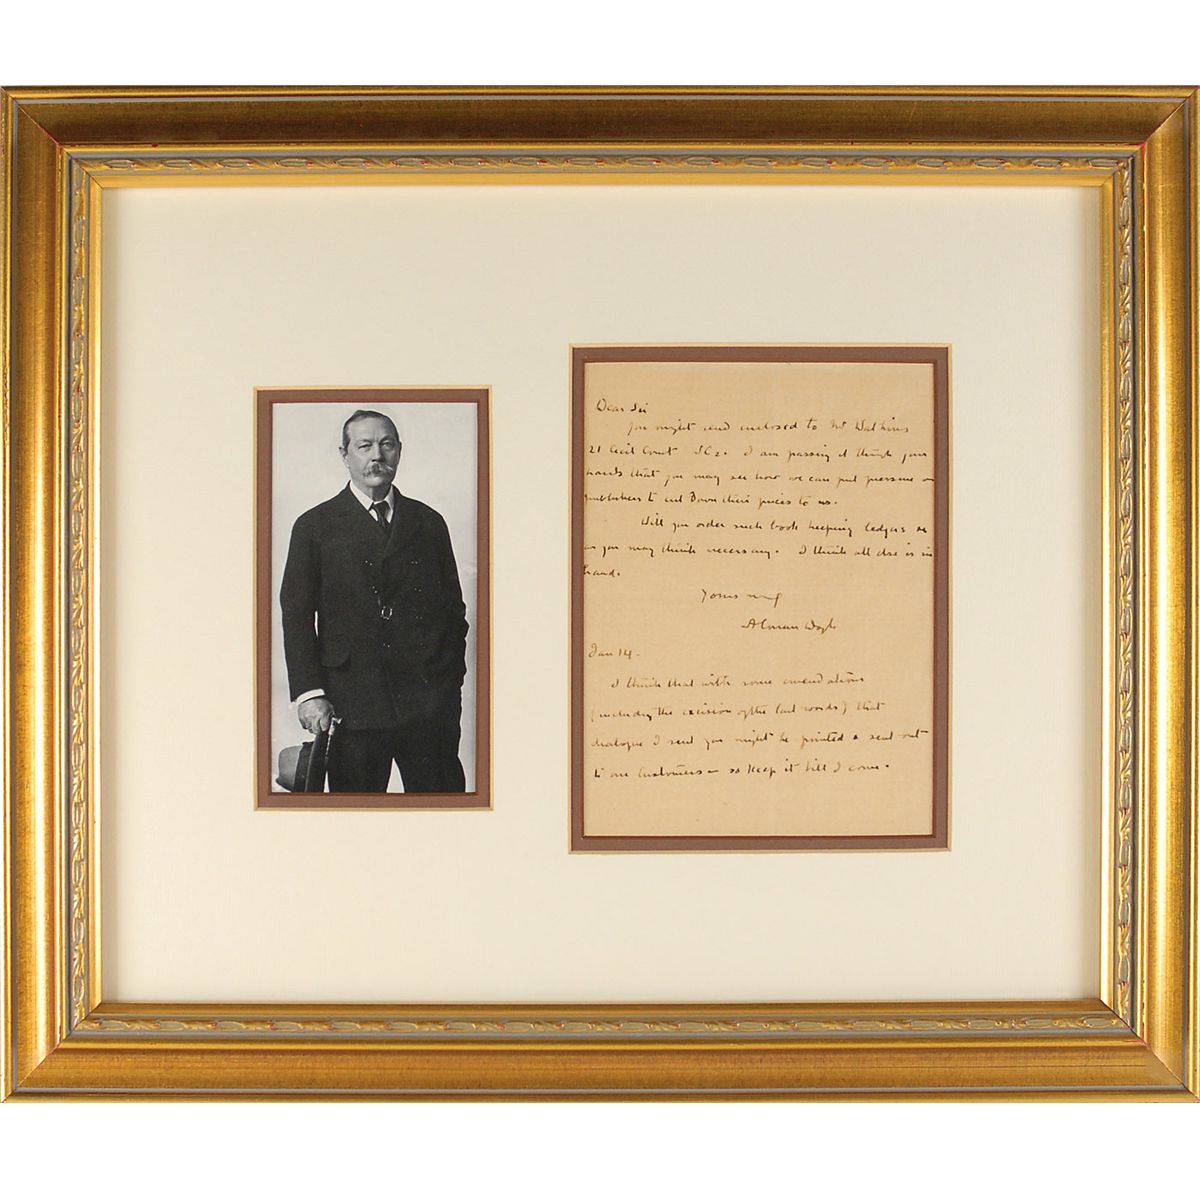 Dear Sir
You might send enclosed to Mr Watkins
21 Cecil Court WC2. I am passing it through your
hands that you may see how we can put pressure on
publishers to cut down their prices to us.
Will you order such book keeping ledgers &c
as you may think necessary. I think all else is in
hand.
Yours
A Conan Doyle
Jan 14.
I think that with some emendations
(including the excision of the last words) that
dialogue I sent you might be printed & sent out
to our customers – so keep it till I come.